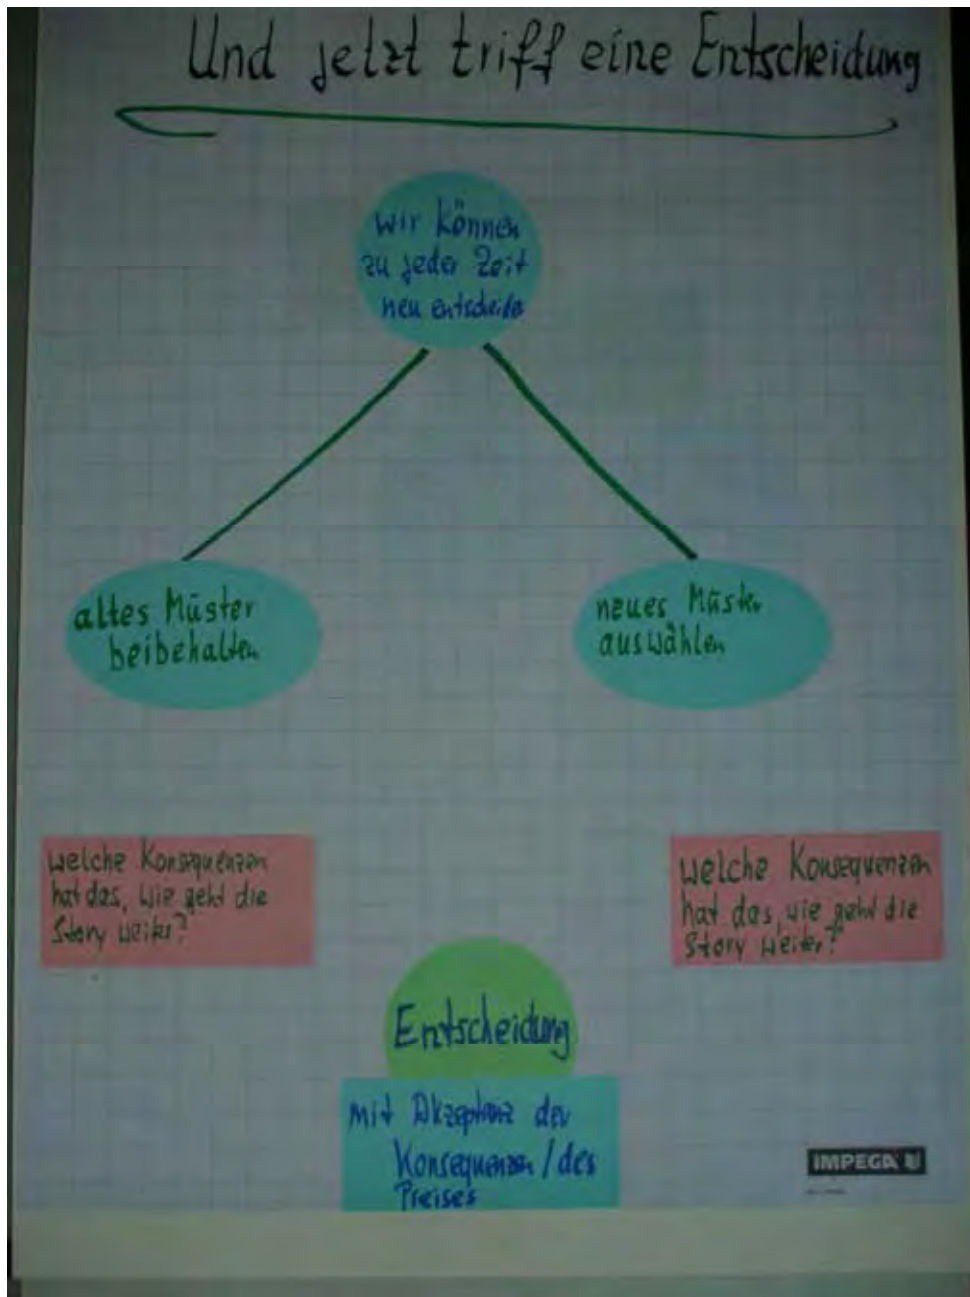 Und jetzt triff eine Entscheidung
wir können
zu jeder Zeit
neu entscheiden
altes Müster
beibehalten
neues Müster
auswählen
welche Konsequenzen
hat das, wie geht die
Story weiter?
welche Konsequenzen
hat das, wie geht die
Story weiter?
Entscheidung
mit Akzeptanz der
Konsequenzen / des
Preises
IMPEGA